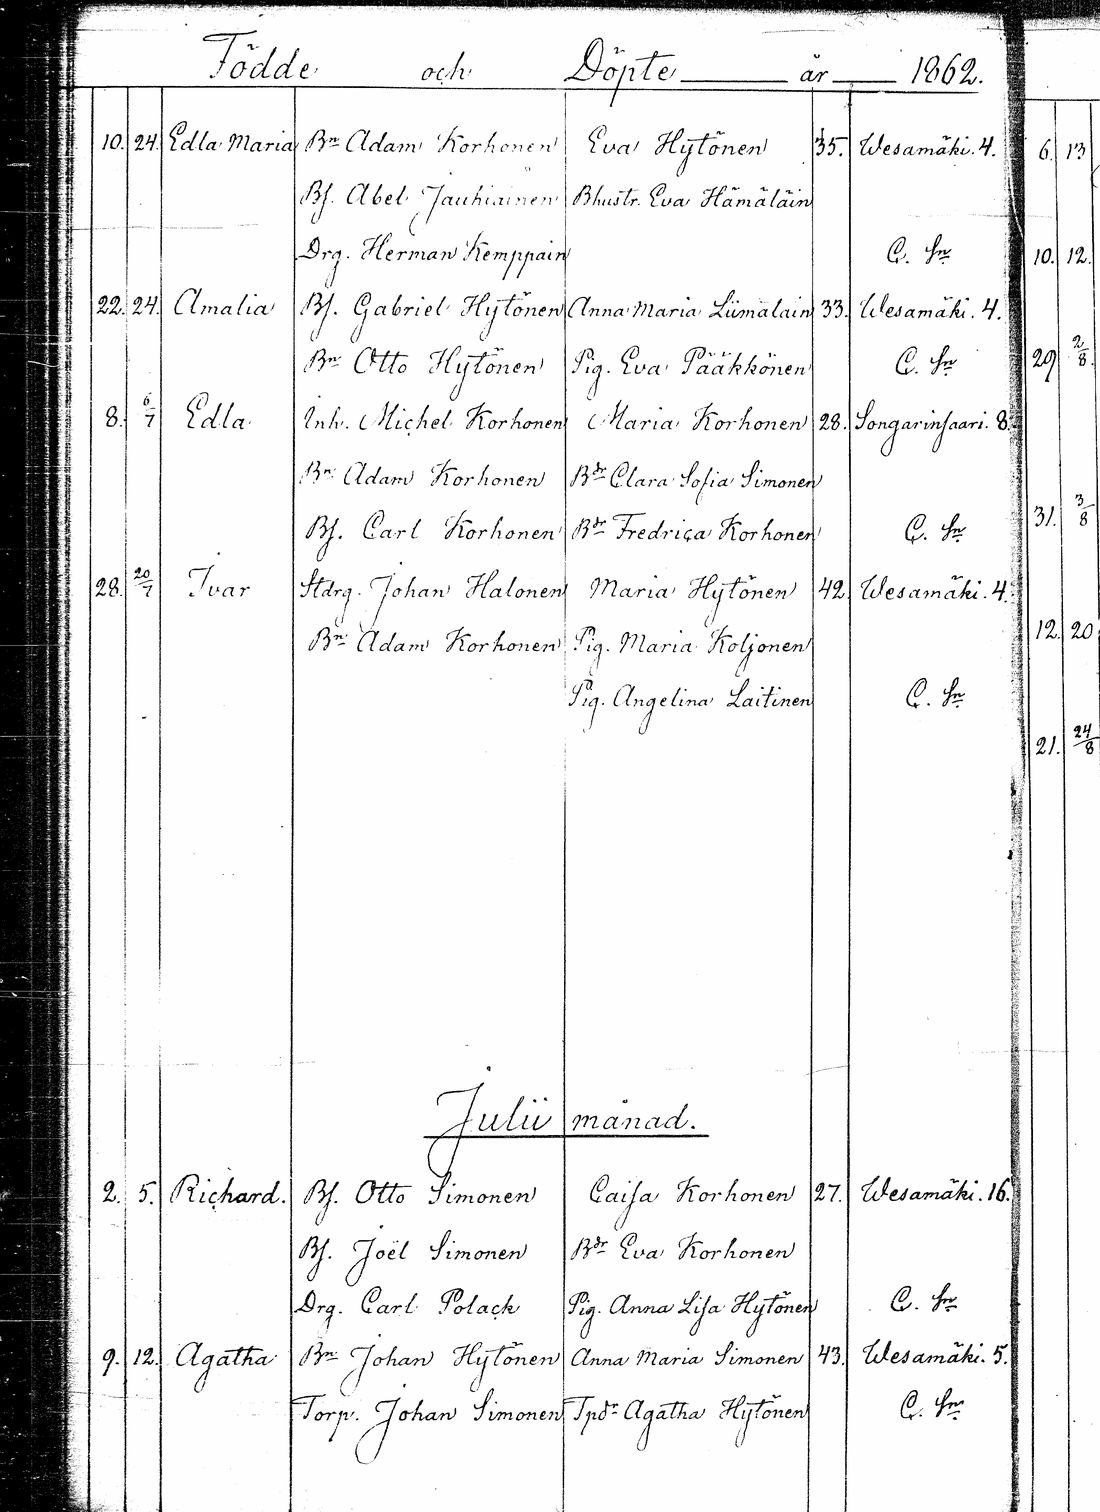 Födde och Döpte år 1862.
10. 24. Edla Maria Bn Adam Korhonen Eva Hytönen 35. Wesamäki. 4. 6. 13
Bs. Abel Jauhiainen Bhustr. Eva Hämäläin
Drg. Herman Kemppain C. Sn 10. 12.
22. 24. Amalia Bs. Gabriel Hytönen Anna Maria Liimalain 33. Wesamäki. 4.
Bn Otto Hytönen Pig. Eva Pääkkönen C. Sn 29 2/8.
8. 6/7 Edla Inh. Michel Korhonen Maria Korhonen 28. Songarinsaari. 8.
Bn Adam Korhonen Bdr Clara Sofia Simonen
Bs. Carl Korhonen Bdr Fredrica Korhonen C. Sn 31. 3/8
28. 20/7 Ivar Stdrg. Johan Halonen Maria Hytönen 42 Wesamäki. 4.
Bn Adam Korhonen Pig. Maria Koljonen 12. 20
Pig. Angelina Laitinen C. Sn
21. 24/8
Julii månad.
2. 5. Richard. Bs. Otto Simonen Caisa Korhonen 27. Wesamäki. 16.
Bs. Joël Simonen Bdr Eva Korhonen
Drg. Carl Polack Pig. Anna Lisa Hytönen C. Sn
9. 12. Agatha Bn Johan Hytönen Anna Maria Simonen 43. Wesamäki. 5.
Torp. Johan Simonen Tpdr Agatha Hytönen C. Sn